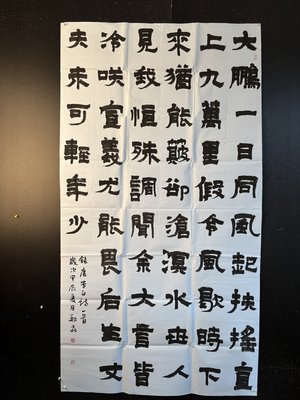 大鵬一日同風起扶搖直
上九萬里假令風歇時下
來猶能簸卻滄溟水世人
見我恒殊調聞余大言皆
冷咲宣義尤能畏后生丈
夫未可輕年少
錄唐李白詩一首
歲次甲辰夏月